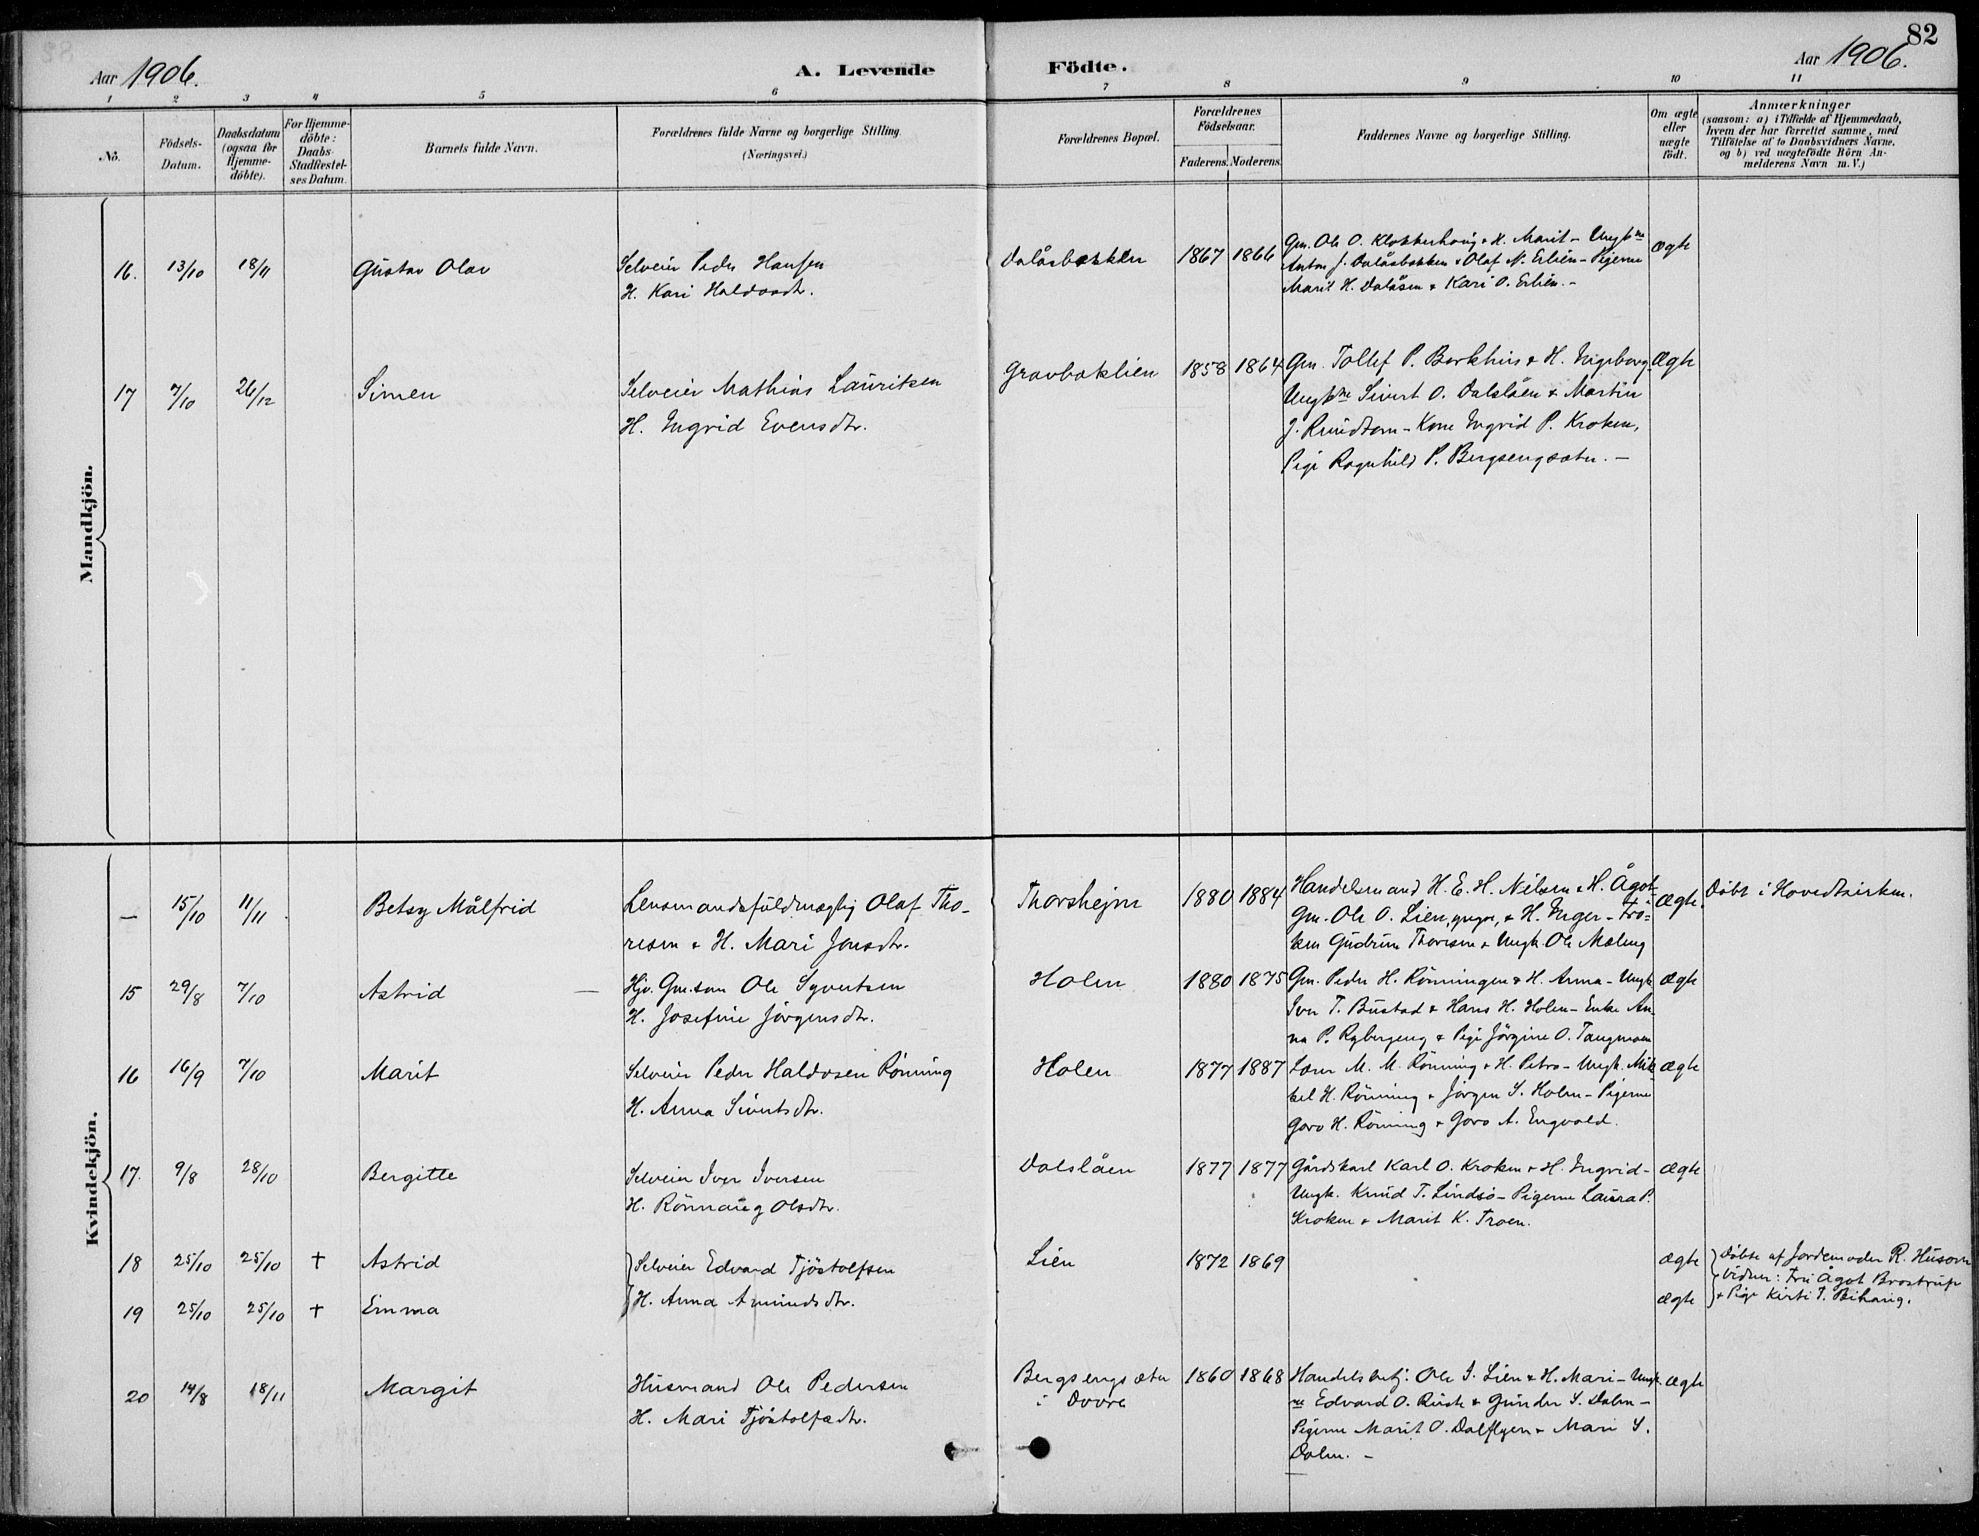 82
Aar 1906.
A. Levende Födte.
Aar 1906.
1 2 3 4 5 6 7 8 9 10 11
No.
Födsels-Datum.
Daabsdatum (ogsaa for Hjemme-döbte).
For Hjemme-döbte: Daabs-Stadfæstel-ses Datum.
Barnets fulde Navn.
Forældrenes fulde Navne og borgerlige Stilling.
(Næringsvei.)
Forældrenes Bopæl.
Forældrenes Födselsaar.
Faderens. Moderens.
Faddernes Navne og borgerlige Stilling.
Om ægte eller uægte födt.
Anmærkninger
(saasom: a) i Tilfælde af Hjemmedaab,
hvem der har forrettet samme, med
Tilföielse af to Daabsvidners Navne,
og b) ved uægtefödte Börn An-
melderens Navn m. V.)
Mandkjön.
16. 13/10 18/11 Gustav Olav
Selveier Peder Hansen
H. Kari Haldosdtr.
Dalåsbakken 1867 1866
Gm. Ole O. Klokkerhoug & H. Marit - Ungkne
Anton J. Dalåsbakken & Olaf N. Erlien - Pigerne
Marit H. Dalåsen & Kari O. Erlien. -
ægte
17 7/10 26/12 Simen
Selveier Mathias Lauritsen
H. Ingrid Evensdtr.
Gravbaklien 1858 1864
Gm. Tollef P. Barkhus & H. Ingeborg
Ungkne Sivert O. Dalslåen & Martin
J. Rundtom - Kone Ingrid P. Kroken,
Pige Ragnhild P. Bergsengsæter. -
Ægte
Kvindekjön.
— 15/10 11/11 Betsy Målfrid
Lensmandsfuldmægtig Olaf Tho-
resen & H. Mari Jonsdtr.
Thorshejm 1880 1884
Handelsmand H. E. H. Nilsen & H. Ågot
Gm. Ole O. Lien, yngre, & H. Inger - Frö-
ken Gudrun Thoresen & Ungk. Ole Mæling
Ægte.
Döbt i Hovedkirken.
15 29/8 7/10 Astrid —
Hjv. Gm. søn Ole Syvertsen
H. Josefine Jörgensdtr.
Holen 1880 1875
Gm. Peder H. Rönningen & H. Anna - Ungk
Iver T. Bustad & Hans H. Holen - Enke An-
na P. Rybergeng & Pige Jörgine O. Tangmoen
ægte
16 16/9 7/10 Marit
Selveier Peder Haldosen Rönning
H. Anna Sivertsdtr.
Holen 1877 1887
Lærer M. M. Rönning & H. Petra - Ungk. Mik-
kel H. Rönning & Jörgen S. Holen - Pigerne
Goro H. Rönning & Goro A. Engvold.
ægte
17. 9/8 28/10 Bergitte
Selveier Iver Iversen
H. Rönnaug Olsdtr.
Dalslåen 1877 1877
Gårdskarl Karl O. Kroken & H. Ingrid -
Ungk. Knud T. Lindsö - Pigerne Laura P.
Kroken & Marit K. Troen.
ægte
18 25/10 25/10 † Astrid
Selveier Edvard Tjöstolfsen
Lien 1872 1869
ægte
Döbte af Jordemoder R. Husom
Vidner: Fru Ågot Brostrup
19 25/10 25/10 † Emma
H. Anna Amundsdtr.
ægte
& Pige Kirsti T. Bihaug.
20 14/8 18/11 Margit
Husmand Ole Pedersen
H. Mari Tjöstolfsdtr.
Bergsengsæter
i Dovre
1860 1868
Handelsbetj. Ole I. Lien & H. Mari - Ungk.
ne Edvard O. Rusk & Gunder S. Dalen -
Pigerne Marit O. Dalflyen & Mari S.
Dalen. -
ægte